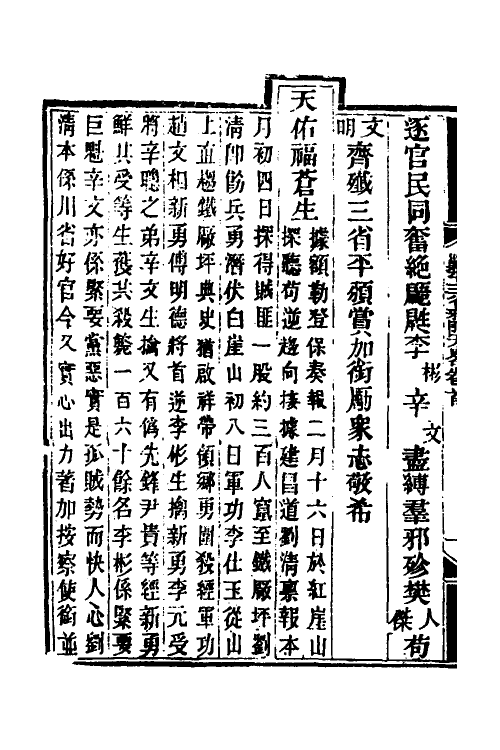 逐官民同奮絶李彬辛文盡縛羣邪殄樊人傑苟
文明齊殲三省平頒賞加銜勵衆志敬希
天佑福蒼生
據額勒登保奏報二月十六日於紅崖山
探聽苟逆趨向接據建昌道劉清稟報本
月初四日探得賊匪一股約三百人竄至鐵厰坪劉
清卽飭兵勇潛伏白崖山初八日軍功李仕玉從山
上直趨鐵厰坪典史猶啟祥帶領鄉勇圍殺經軍功
趙文相新勇傅明德將首逆李彬生擒新勇李元受
將辛聰之弟辛文生擒又有僞先鋒尹貴等經新勇
鮮其受等生獲共殺斃一百六十餘名李彬係緊要
巨魁辛文亦係緊要黨惡實是孤賊勢而快人心劉
清本係川省好官今又實心出力著加按察使銜並